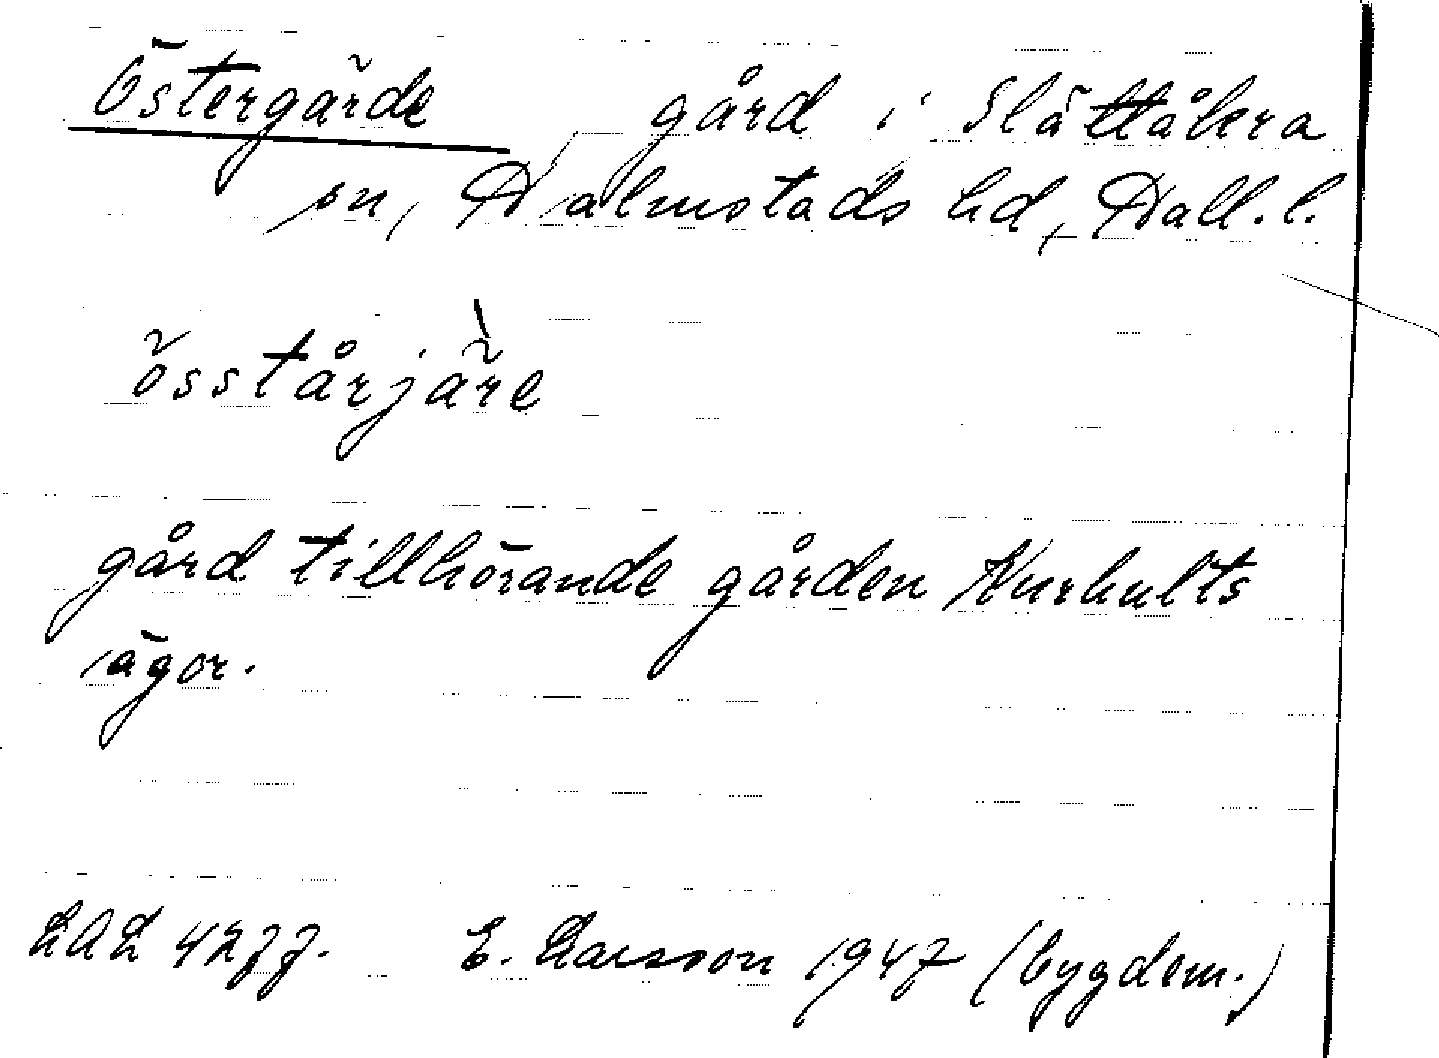 Östergärde gård i Slättåkra
sn, Halmstads hd, Hall. l.
össtårjäre
gård tillhörande gården Kurhults
ägor.
LAL 4277. E. Larsson 1947 (bygdem.)